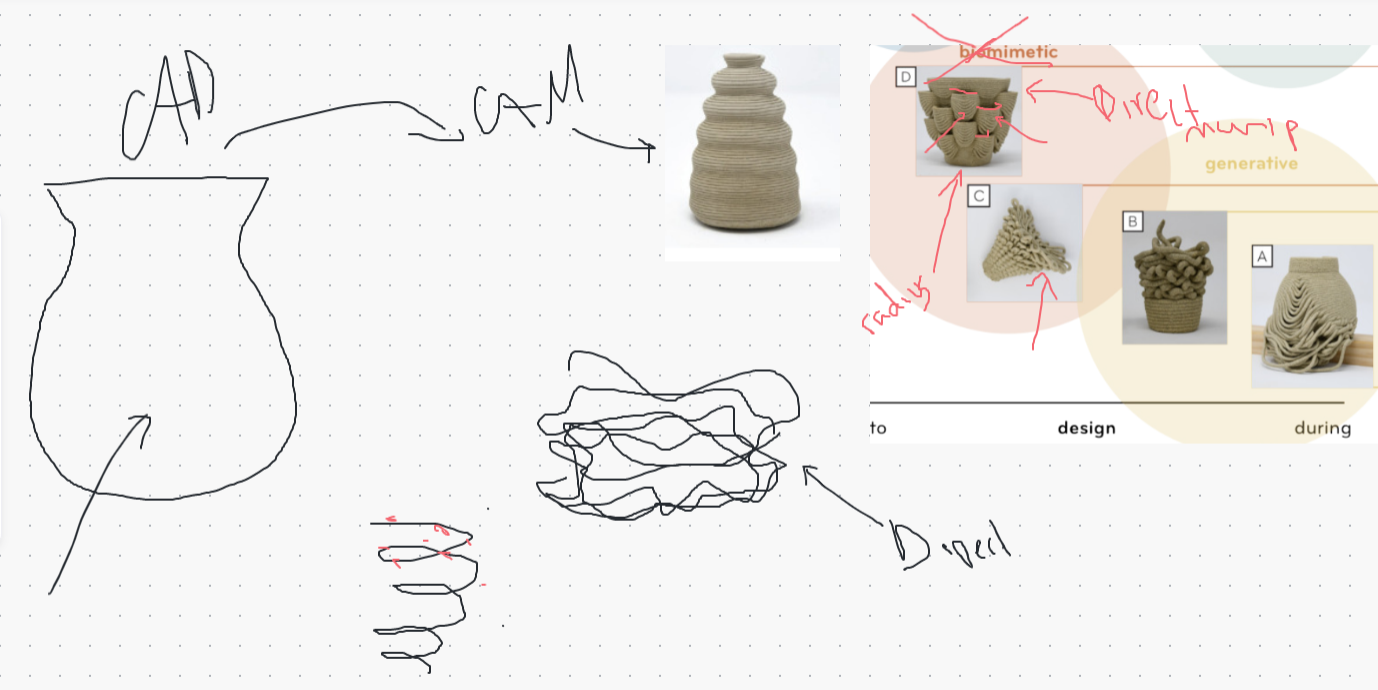 CAD
CAM
biomimetic
D
Direct
generative
C
B
A
radius
to
design
during